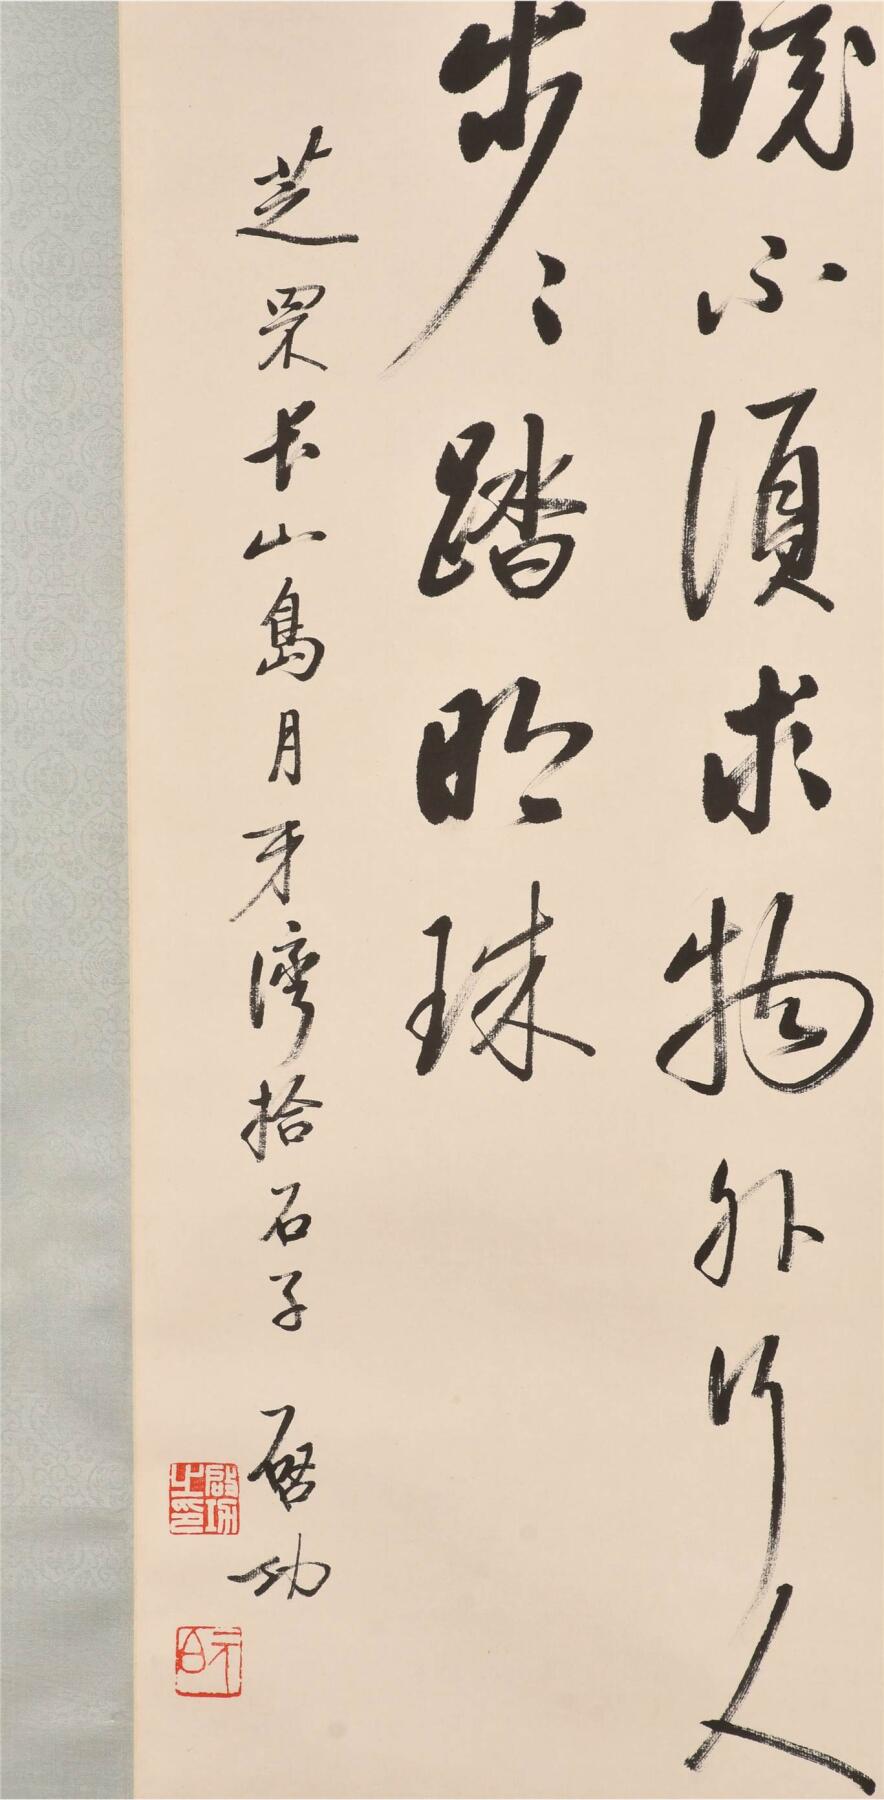 境不須求物外行人
步々踏明珠
芝罘長山島月牙灣拾石子 啓功
啟功之印
元白